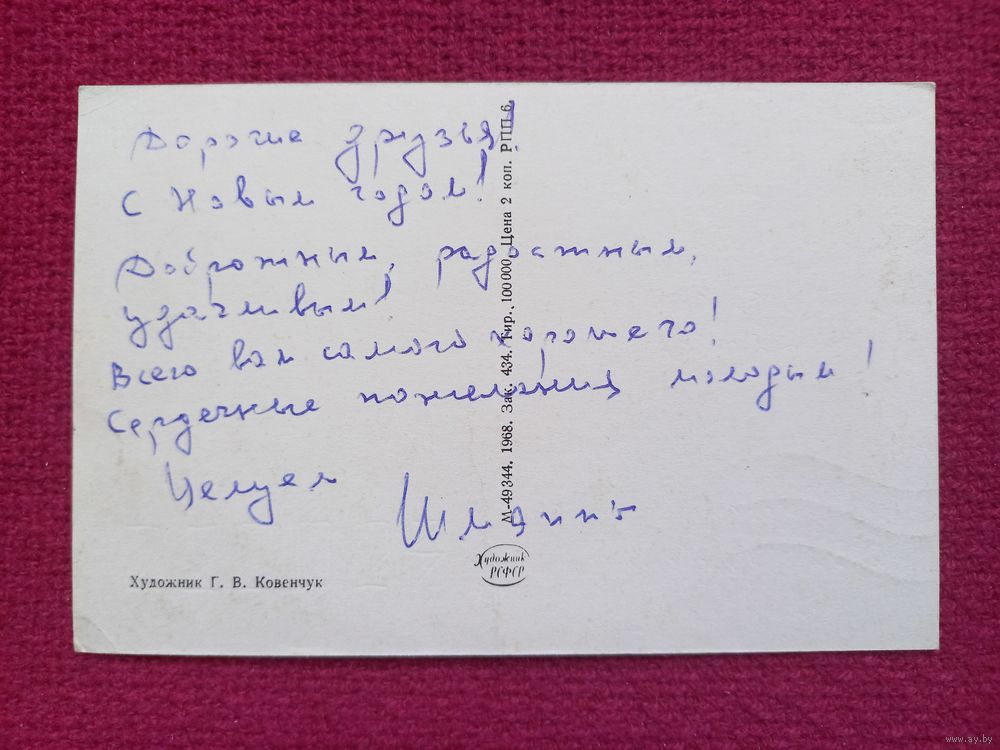 Дорогие друзья!
С Новым годом!
радостным,
удачливым!
Всего вам самого хорошего!
Сердечные пожелания молодым!
Целуем
М-49344. 1968. Зак. 434. Тир. 100000 Цена 2 коп. РПП 6.
Художник РСФСР
Художник Г. В. Ковенчук
www.ay.by